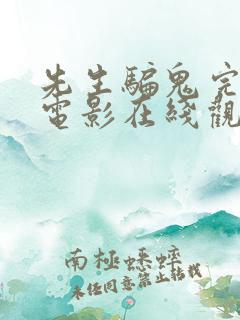 先生騙鬼完
電影在綫觀
南極蟋蟀
未经同意禁止转载